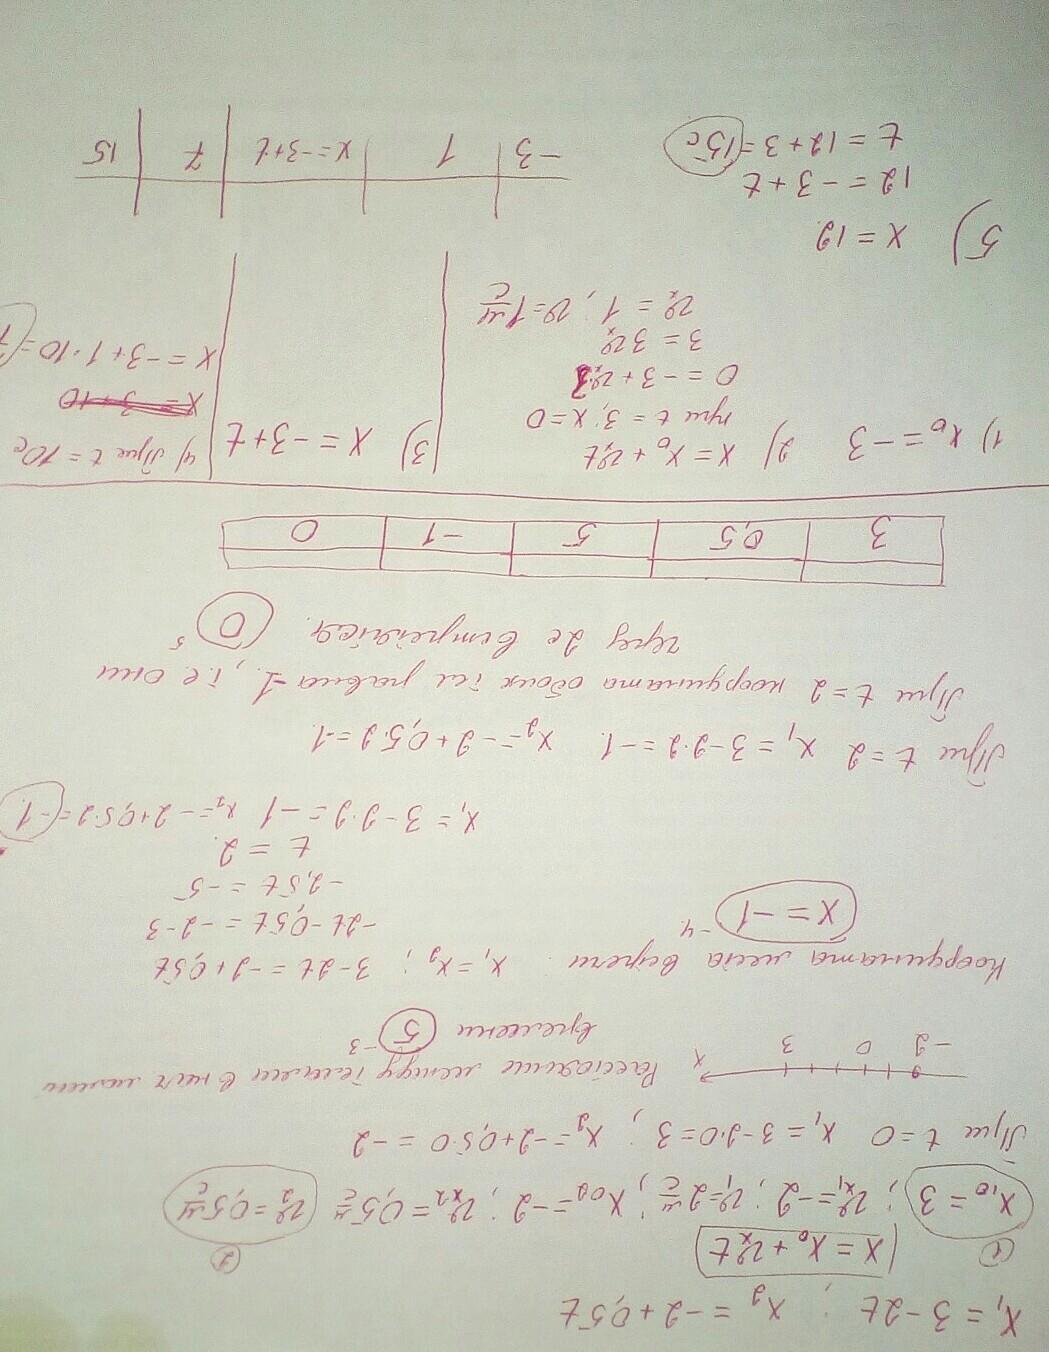 x₁ = 3 - 2t ; x₂ = -2 + 0,5t
x = x₀ + vₓt
① x₁₀ = 3 ; vₓ₁ = -2 ; v₁ = 2 м/с ; x₀₂ = -2 ; vₓ₂ = 0,5 м/с v₂ = 0,5 м/с ②
При t = 0 x₁ = 3 - 2·0 = 3 ; x₂ = -2 + 0,5·0 = -2
-2 0 3 x
Расстояние между телами в нач. момент
времени 5 -3
Координата места встречи: x₁ = x₂ ; 3 - 2t = -2 + 0,5t
x = -1 -4
-2t - 0,5t = -2 - 3
-2,5t = -5
t = 2.
x₁ = 3 - 2·2 = -1 x₂ = -2 + 0,5·2 = -1.
При t = 2 x₁ = 3 - 2·2 = -1. x₂ = -2 + 0,5·2 = -1.
При t = 2 координата обоих тел равна -1, т.е они
через 2с встретятся. 0 5
3 0,5 5 -1 0
1) x₀ = -3
2) x = x₀ + vₓt
при t = 3; x = 0
0 = -3 + vₓ·3
3 = 3vₓ
vₓ = 1 ; v = 1 м/с
3) x = -3 + t
4) При t = 10с
x = -3 + 10
x = -3 + 1·10 = 7
5) x = 12.
12 = -3 + t
t = 12 + 3 = 15с
-3 1 x = -3 + t 7 15